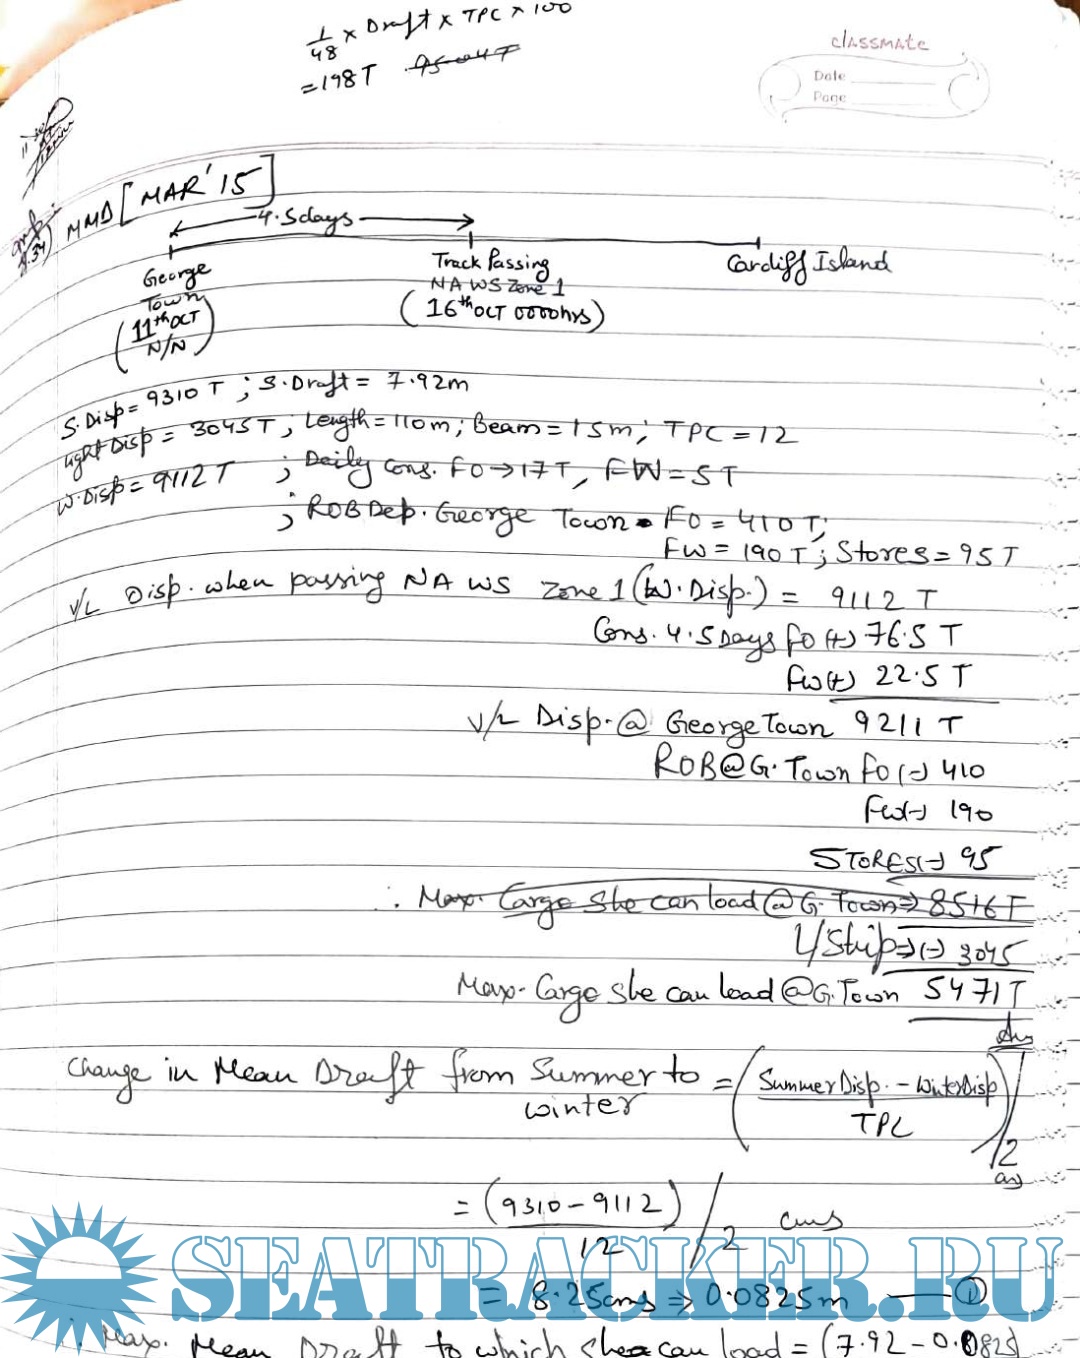 1/48 x Draft x TPC x 100
= 198 T 95.04 T
classmate
Date
Page
MMD [MAR'15]
4.5days
George Town (11th OCT N/N)
Track Passing NA WS Zone 1 (16th OCT 0000hrs)
Cardiff Island
S.Disp = 9310 T ; S.Draft = 7.92m
Light Disp = 3045T ; Length = 110m ; Beam = 15m ; TPC = 12
W.Disp = 9112 T ; Daily Cons. FO → 17 T, FW = 5 T
; ROB Dep. George Town FO = 410 T;
FW = 190 T ; Stores = 95 T
V/L Disp. when passing NA WS Zone 1 (W.Disp.) = 9112 T
Cons. 4.5 Days FO (+) 76.5 T
FW (+) 22.5 T
V/L Disp. @ George Town 9211 T
ROB @ G. Town FO (-) 410
FW (-) 190
STORES (-) 95
∴ Max. Cargo She can load @ G. Town ⇒ 8516 T
L/Ship ⇒ (-) 3045
Max. Cargo She can load @ G. Town 5471 T
Ans
Change in Mean Draft from Summer to winter = (Summer Disp. - Winter Disp / TPC) / 2
= (9310 - 9112 / 12) / 2 cms
= 8.25cms ⇒ 0.0825m — ①
SEATRACKER.RU
Max. Mean Draft to which she can load = (7.92 - 0.0825)